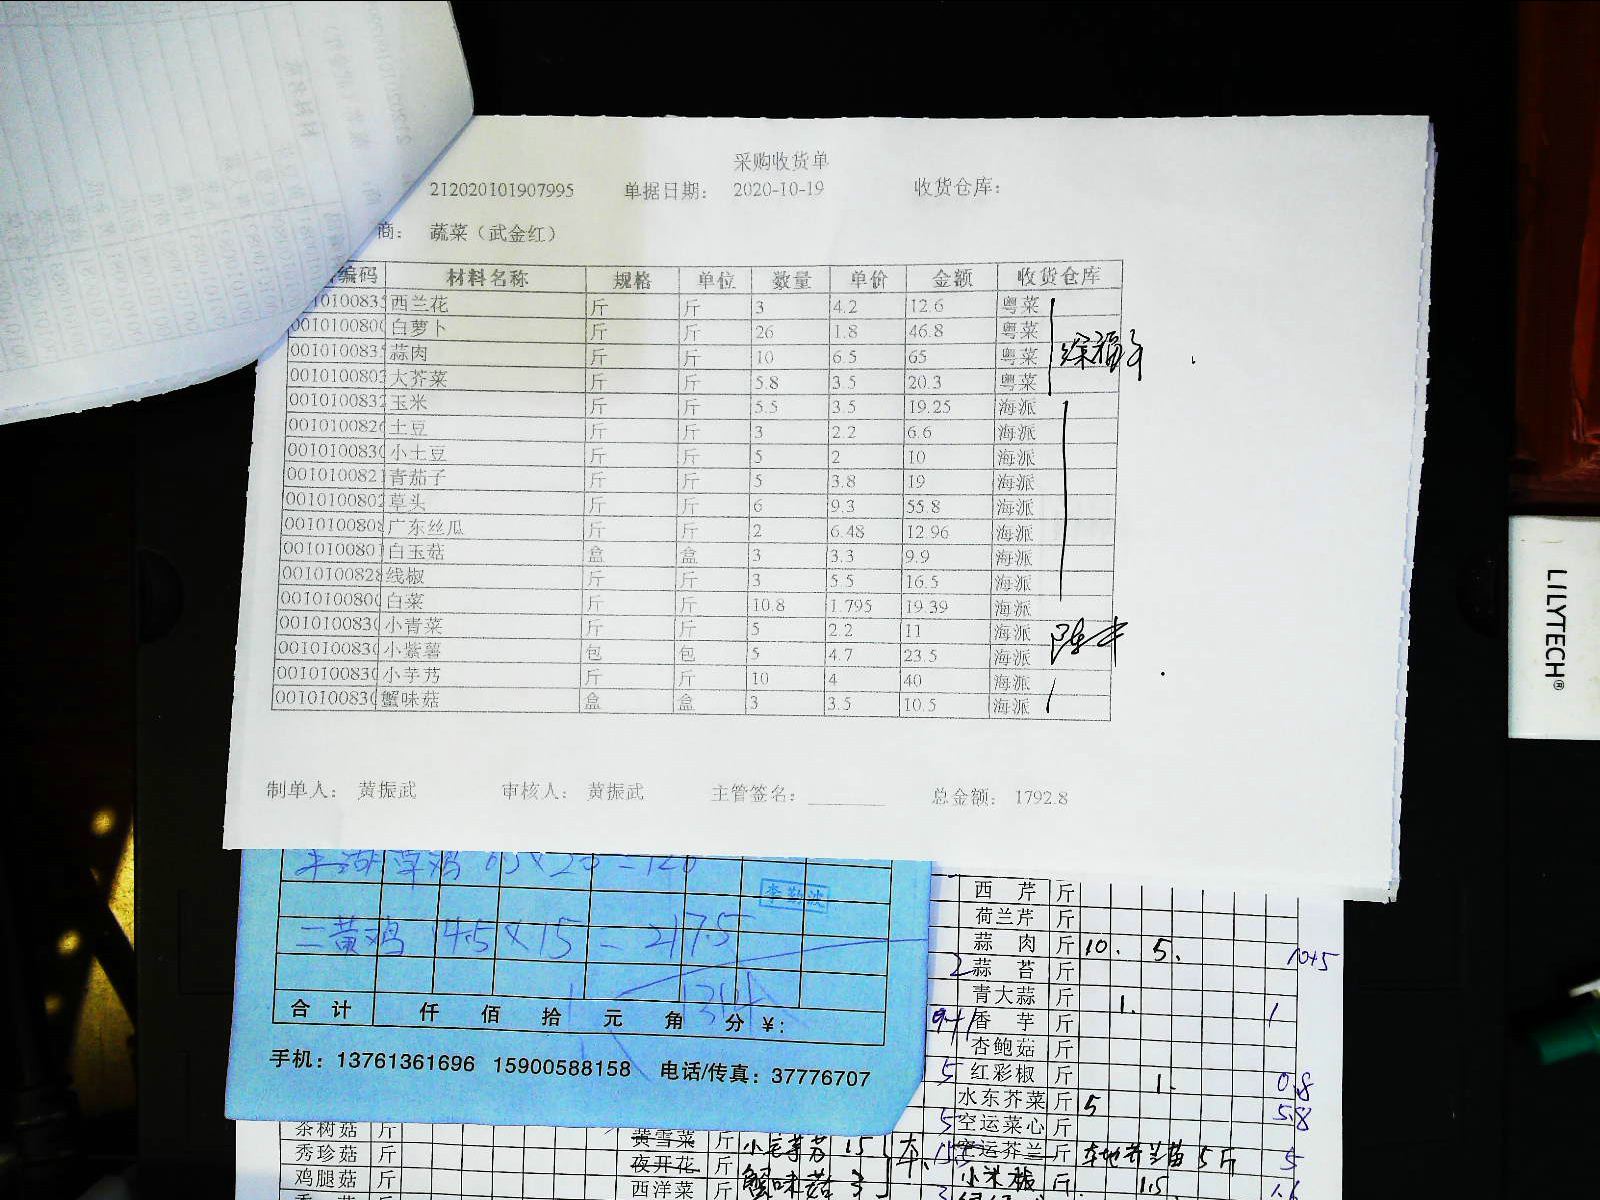 采购收货单
212020101907995 单据日期： 2020-10-19 收货仓库：
商： 蔬菜（武金红）
编码 材料名称 规格 单位 数量 单价 金额 收货仓库
西兰花 斤 斤 3 4.2 12.6 粤菜
白萝卜 斤 斤 26 1.8 46.8 粤菜
蒜肉 斤 斤 10 6.5 65 粤菜
大芥菜 斤 斤 5.8 3.5 20.3 粤菜
0010100832 玉米 斤 斤 5.5 3.5 19.25 海派
001010082 土豆 斤 斤 3 2.2 6.6 海派
001010083 小土豆 斤 斤 5 2 10 海派
001010082 青茄子 斤 斤 5 3.8 19 海派
0010100802 草头 斤 斤 6 9.3 55.8 海派
001010080 广东丝瓜 斤 斤 2 6.48 12.96 海派
001010080 白玉菇 盒 盒 3 3.3 9.9 海派
0010100828 线椒 斤 斤 3 5.5 16.5 海派
001010080 白菜 斤 斤 10.8 1.795 19.39 海派
001010083 小青菜 斤 斤 5 2.2 11 海派
001010083 小紫薯 包 包 5 4.7 23.5 海派
001010083 小芋艿 斤 斤 10 4 40 海派
001010083 蟹味菇 盒 盒 3 3.5 10.5 海派
制单人： 黄振武 审核人： 黄振武 主管签名： 总金额： 1792.8
李勤波
三黄鸡 14.5×15=217.5
合 计 仟 佰 拾 元 角 分 ¥：
手机：13761361696 15900588158 电话/传真：37776707
西 芹 斤
荷兰芹 斤
蒜 肉 斤 10. 5. 10+5
2 蒜 苔 斤
青大蒜 斤 1. 1
9+1 香 芋 斤
杏鲍菇 斤
5 红彩椒 斤 1. 0.8
水东芥菜 斤 5 5.8
5 空运菜心 斤
茶树菇 斤 黄雪菜 斤 15 空运芥兰 斤 5斤 5
秀珍菇 斤 夜开花 斤 小米椒 斤 1.5 1.6
鸡腿菇 斤 西洋菜 斤 蟹味菇 3 3
LILYTECH®